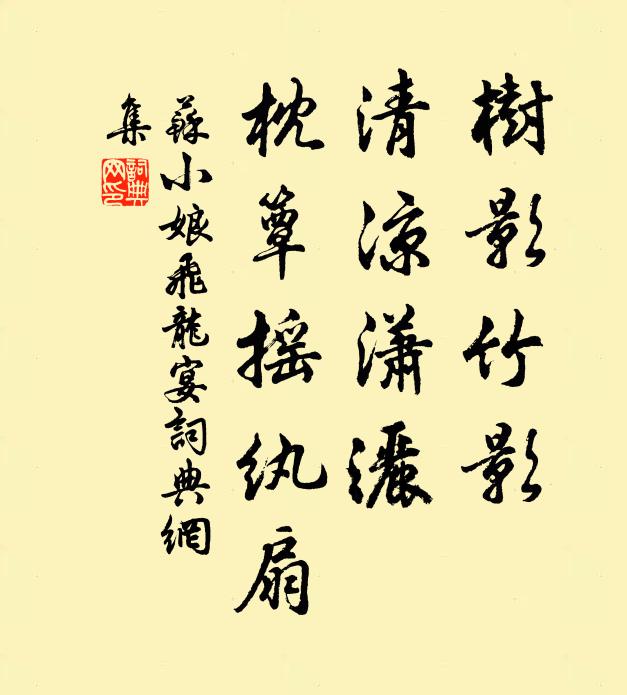 樹影竹影
清涼瀟灑
枕簟搖紈扇
蘇小娘飛龍宴詞典網
集
詞典網印